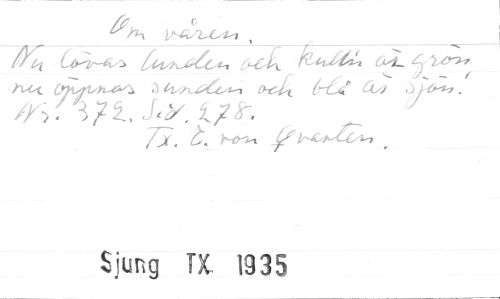 Om våren.
Nu lövas lunden och kullen är grön,
nu öppnas sunden och blå är sjön.
Nr. 372. Sid. 278.
Tx. E. von Qvanten.
Sjung TX. 1935